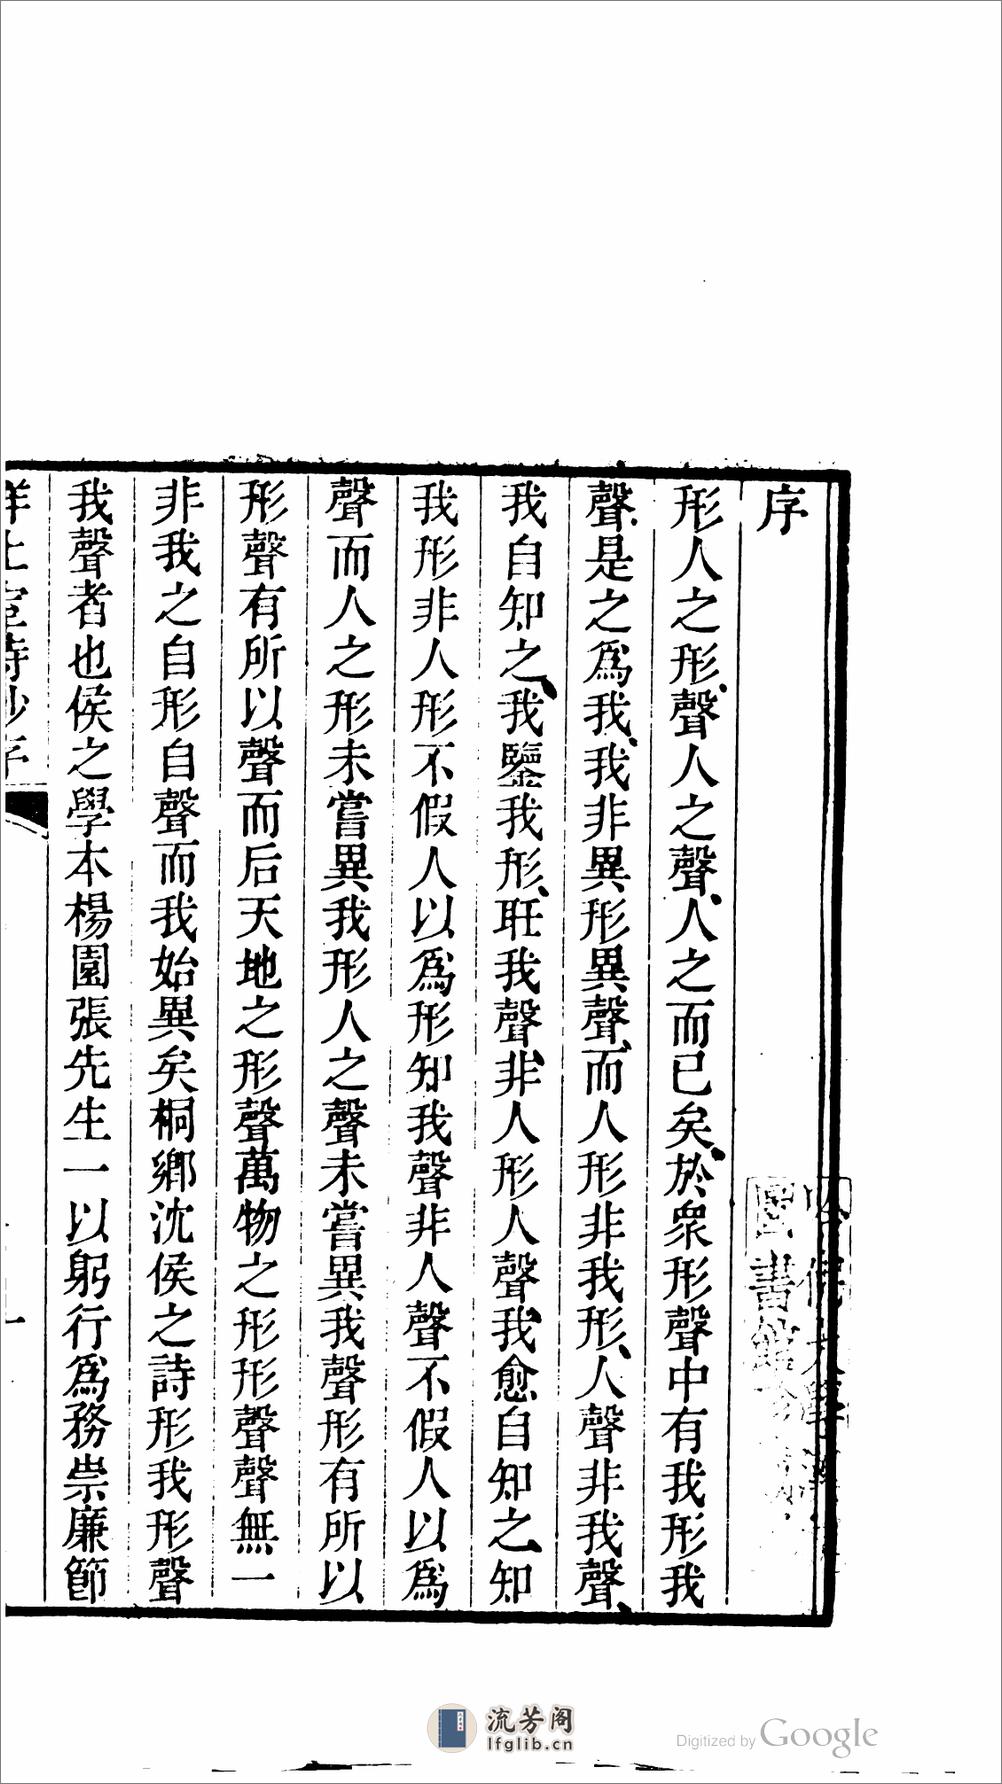 序
形人之形聲人之聲人之而已矣於衆形聲中有我形我
聲是之爲我我非異形異聲而人形非我形人聲非我聲
我自知之我鑒我形耴我聲非人形人聲我愈自知之知
我形非人形不假人以爲形知我聲非人聲不假人以爲
聲而人之形未嘗異我形人之聲未嘗異我聲形有所以
形聲有所以聲而后天地之形聲萬物之形形聲聲無一
非我之自形自聲而我始異矣桐鄉沈侯之詩形我形聲
我聲者也侯之學本楊園張先生一以躬行爲務崇廉節
詩鈔序
圖書館
流芳阁
lfglib.cn
Digitized by Google